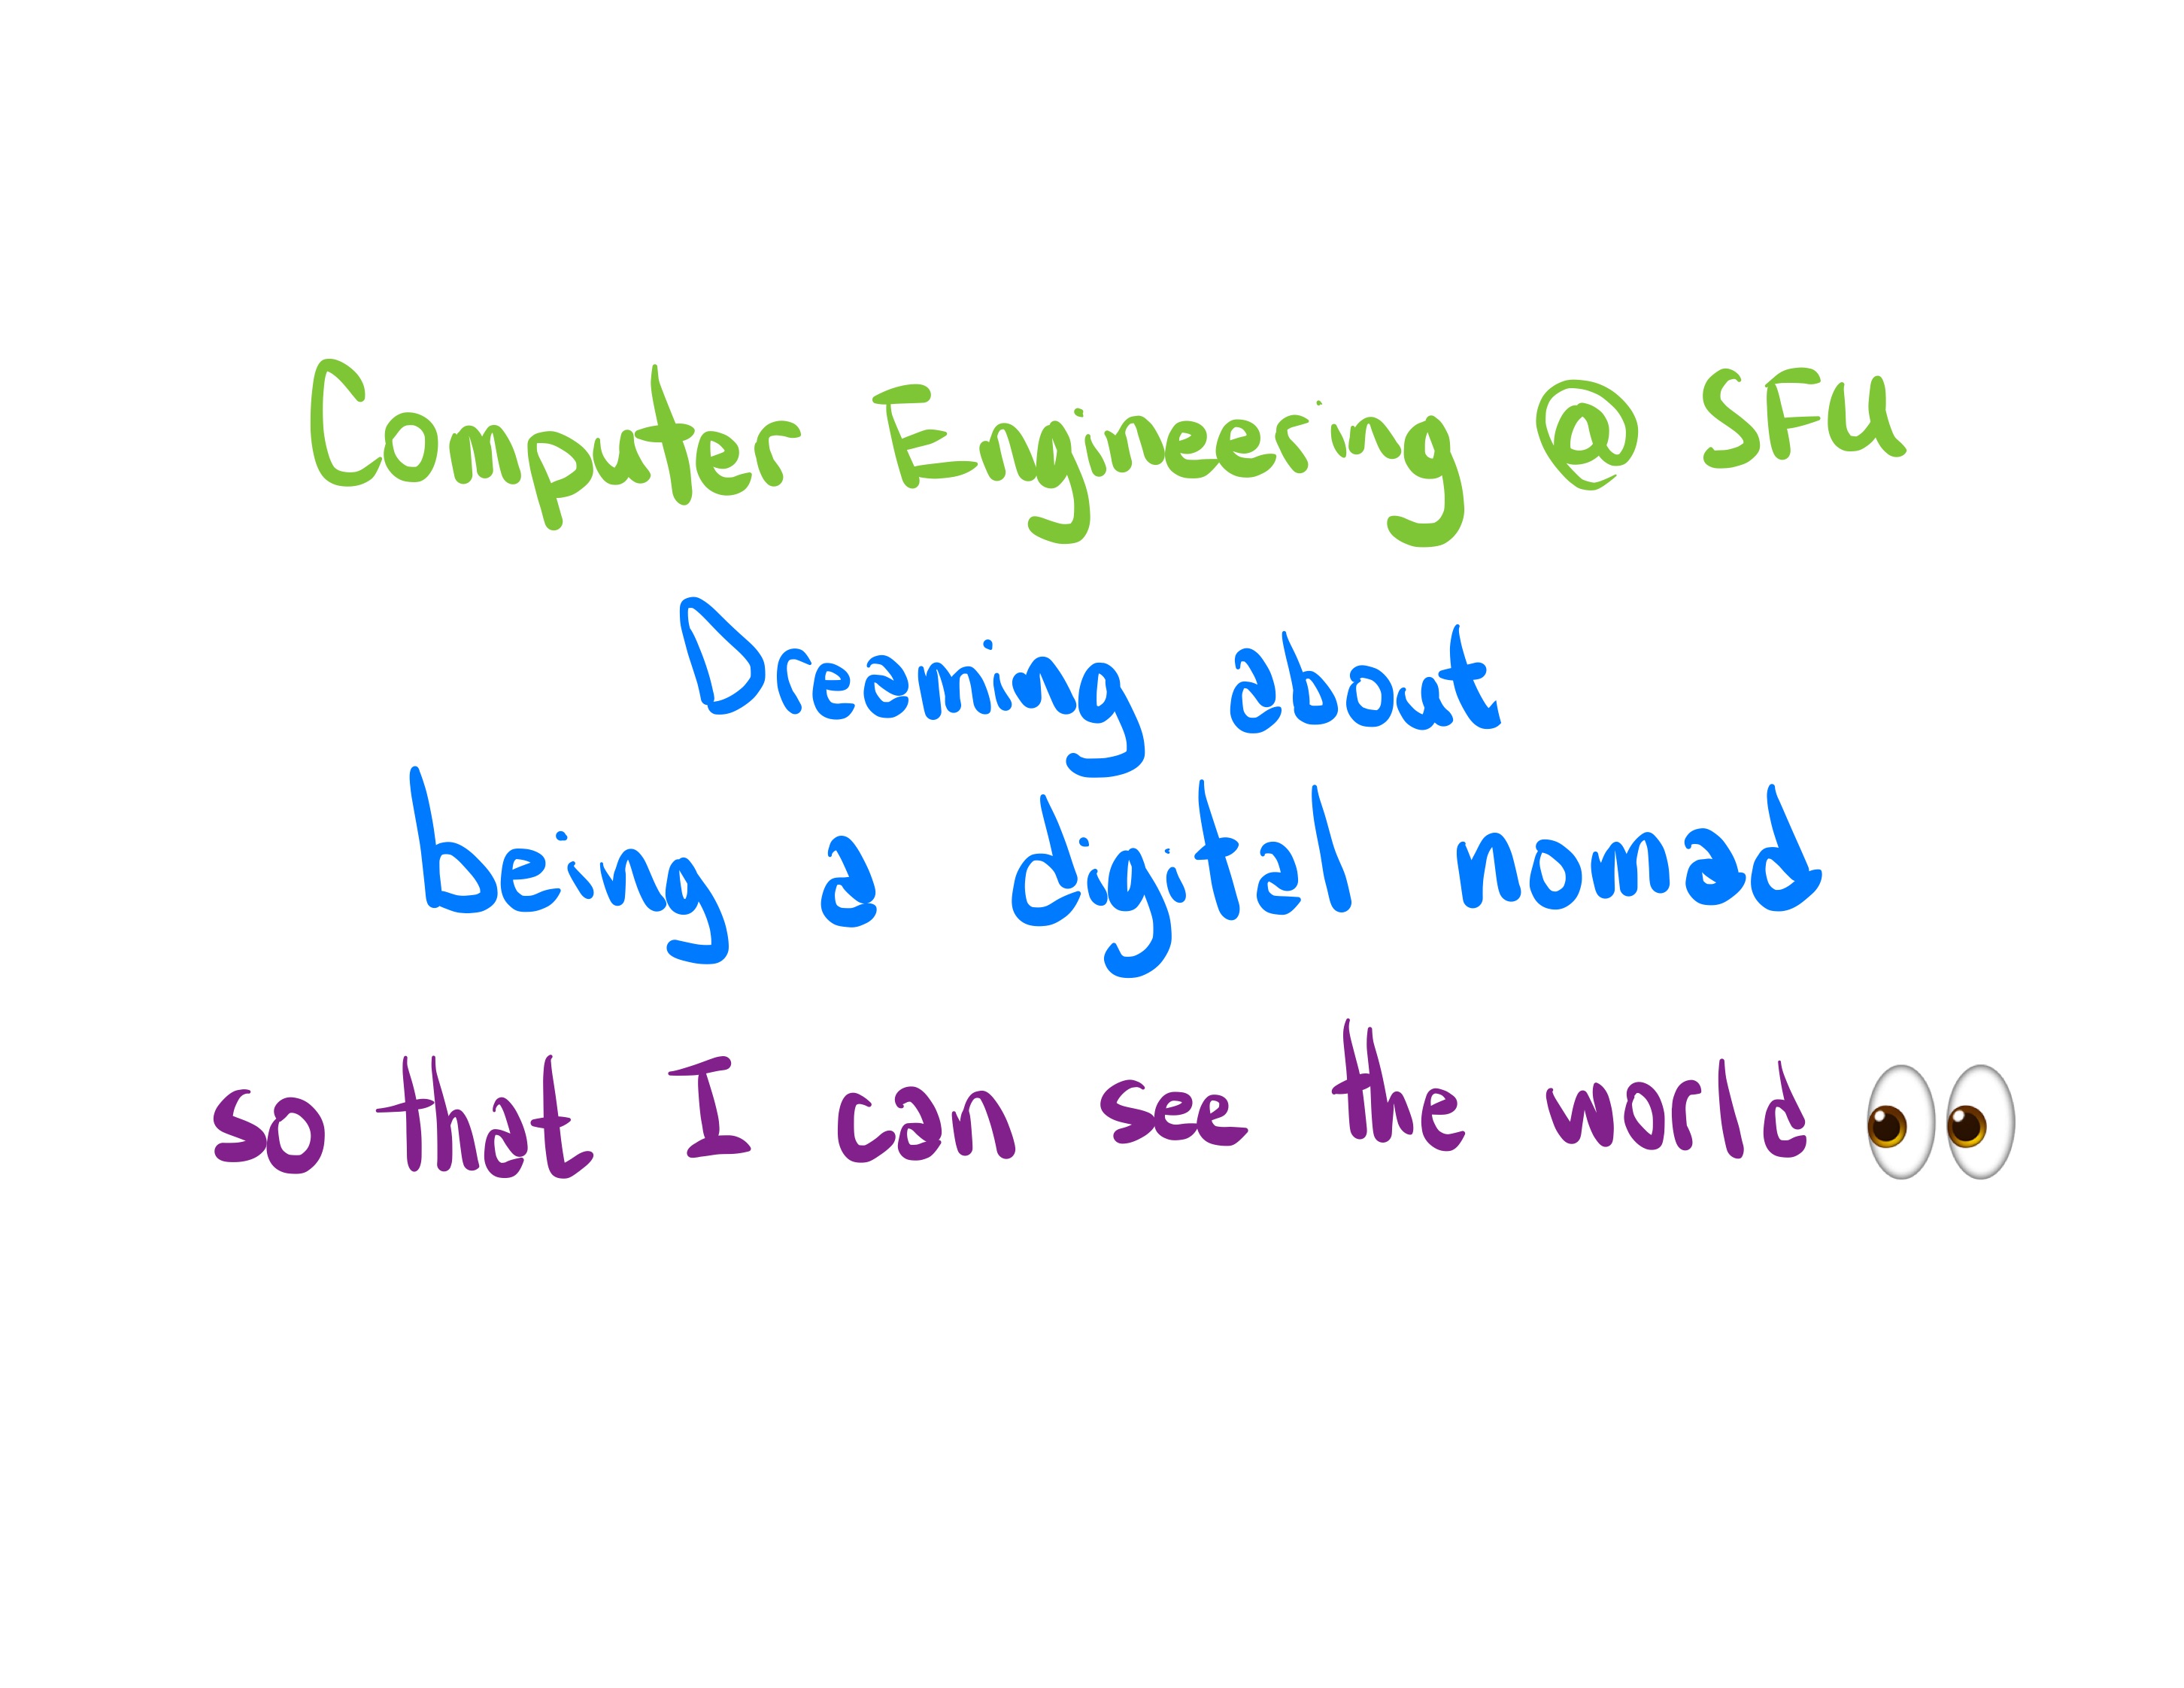 Computer Engineering @ SFU
Dreaming about
being a digital nomad
so that I can see the world 👀